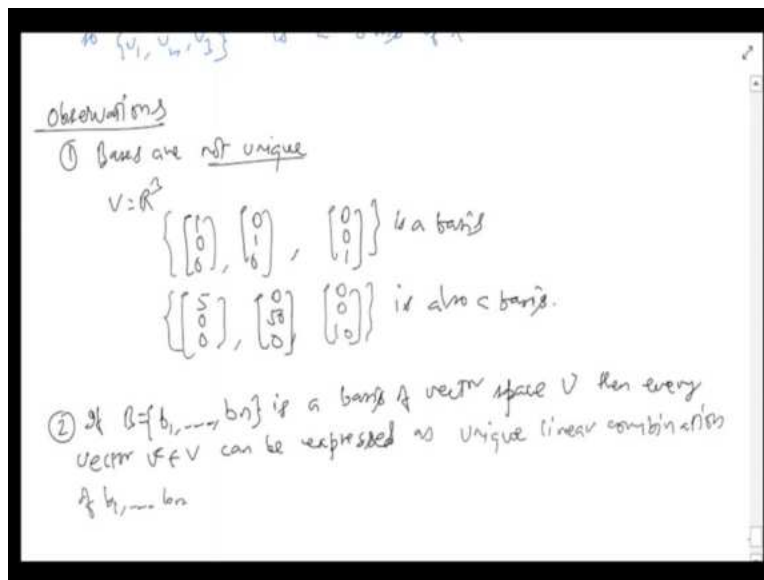 {v1, vn, v3} is a
Observations
① Bases are not unique
V = R^3
{[1 0 0], [0 1 0], [0 0 1]} is a basis
{[5 0 0], [0 50 0], [0 0 10]} is also a basis.
② If B={b1, ..., bn} is a basis of vector space V then every
vector v ∈ V can be expressed as unique linear combination
of b1, ... bn